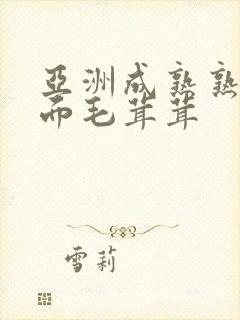 亞洲成熟熟
而毛茸茸
雪莉